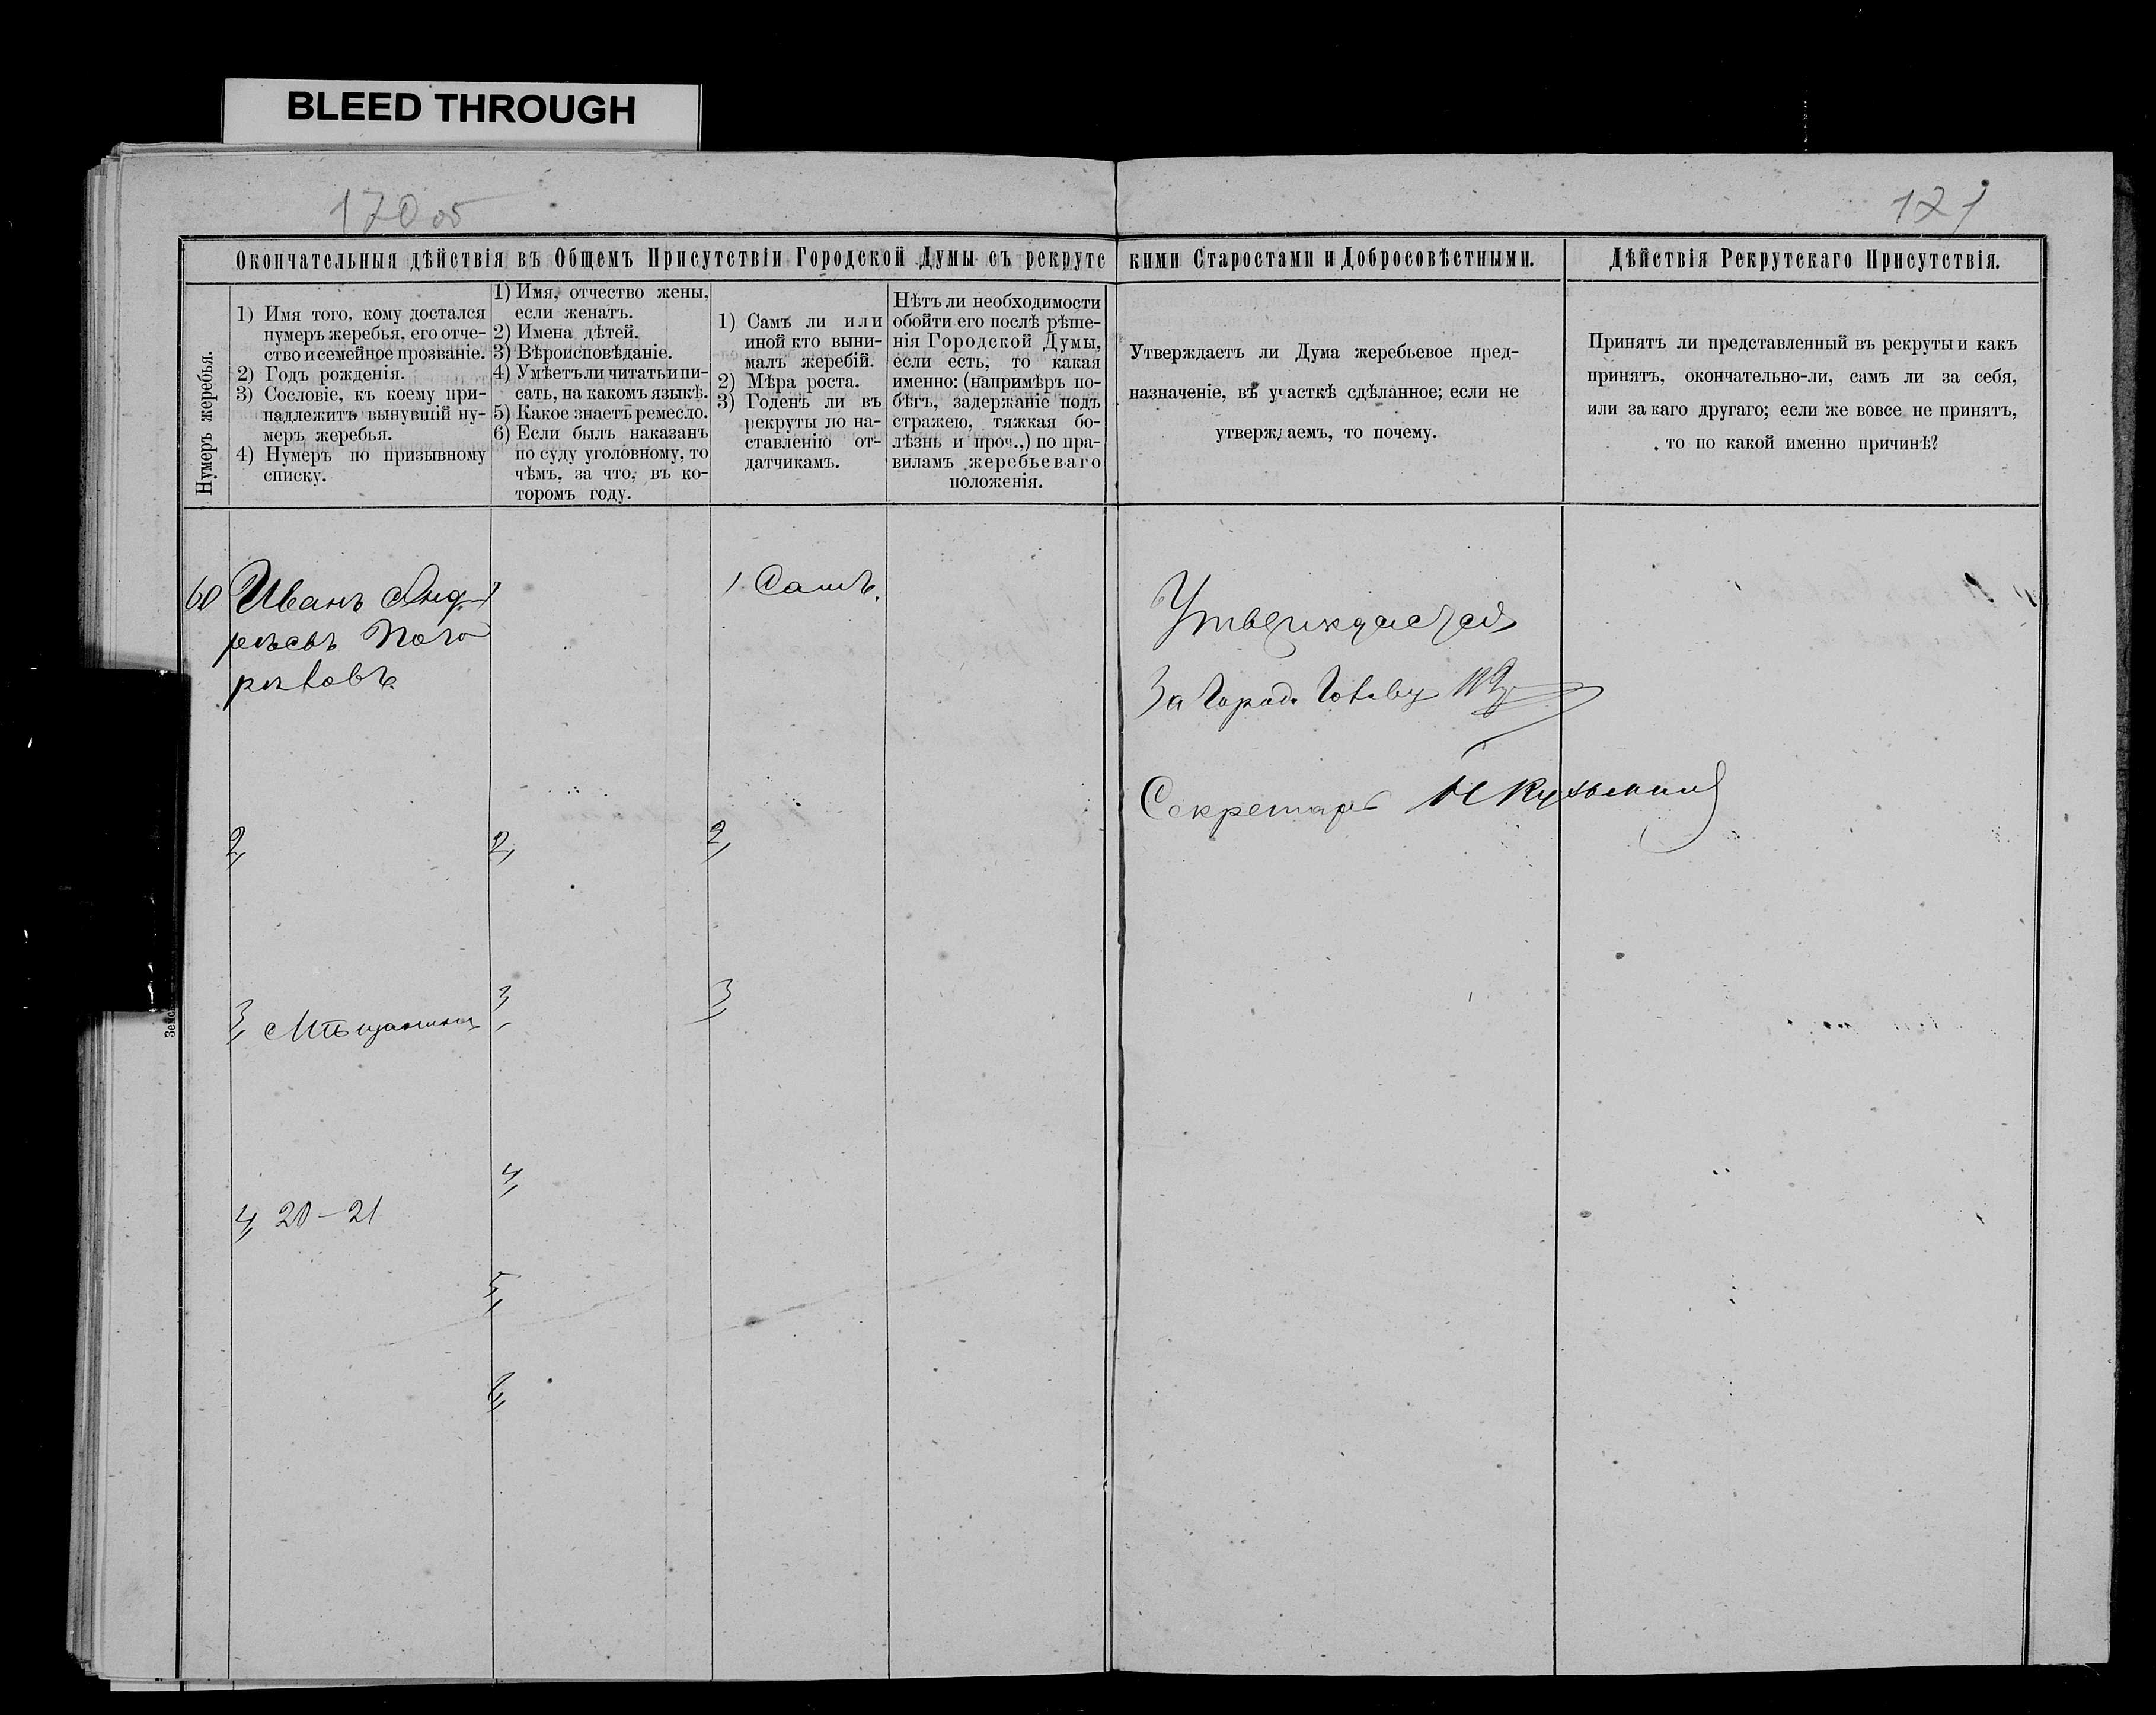 BLEED THROUGH
170 об
171
Окончательныя дѣйствія въ Общемъ Присутствіи Городской Думы съ рекрутс
кими Старостами и Добросовѣстными.
Дѣйствія Рекрутскаго Присутствія.
Нумеръ жеребья.
1) Имя того, кому достался
нумеръ жеребья, его отче-
ство и семейное прозваніе.
2) Годъ рожденія.
3) Сословіе, къ коему при-
надлежитъ вынувшій ну-
меръ жеребья.
4) Нумеръ по призывному
списку.
1) Имя, отчество жены,
если женатъ.
2) Имена дѣтей.
3) Вѣроисповѣданіе.
4) Умѣетъ ли читать и пи-
сать, на какомъ языкѣ.
5) Какое знаетъ ремесло.
6) Если былъ наказанъ
по суду уголовному, то
чѣмъ, за что, въ ко-
торомъ году.
1) Самъ ли или
иной кто выни-
малъ жеребій.
2) Мѣра роста.
3) Годенъ ли въ
рекруты по на-
ставленію от-
датчикамъ.
Нѣтъ ли необходимости
обойти его послѣ рѣше-
нія Городской Думы,
если есть, то какая
именно: (напримѣръ по-
бѣгъ, задержаніе подъ
стражею, тяжкая бо-
лѣзнь и проч.,) по пра-
виламъ жеребьеваго
положенія.
Утверждаетъ ли Дума жеребьевое пред-
назначеніе, въ участкѣ сдѣланное; если не
утверждаемъ, то почему.
Принятъ ли представленный въ рекруты и какъ
принятъ, окончательно-ли, самъ ли за себя,
или за каго другаго; если же вовсе не принятъ,
то по какой именно причинѣ?
60
Иванъ Анд-
рѣевъ Пого
рѣловъ.
2,
3, Мѣщанинъ
4, 20-21
2,
3,
4,
5,
6,
1 Самъ.
2,
3,
Утверждается
За Город. Голову
Секретарь